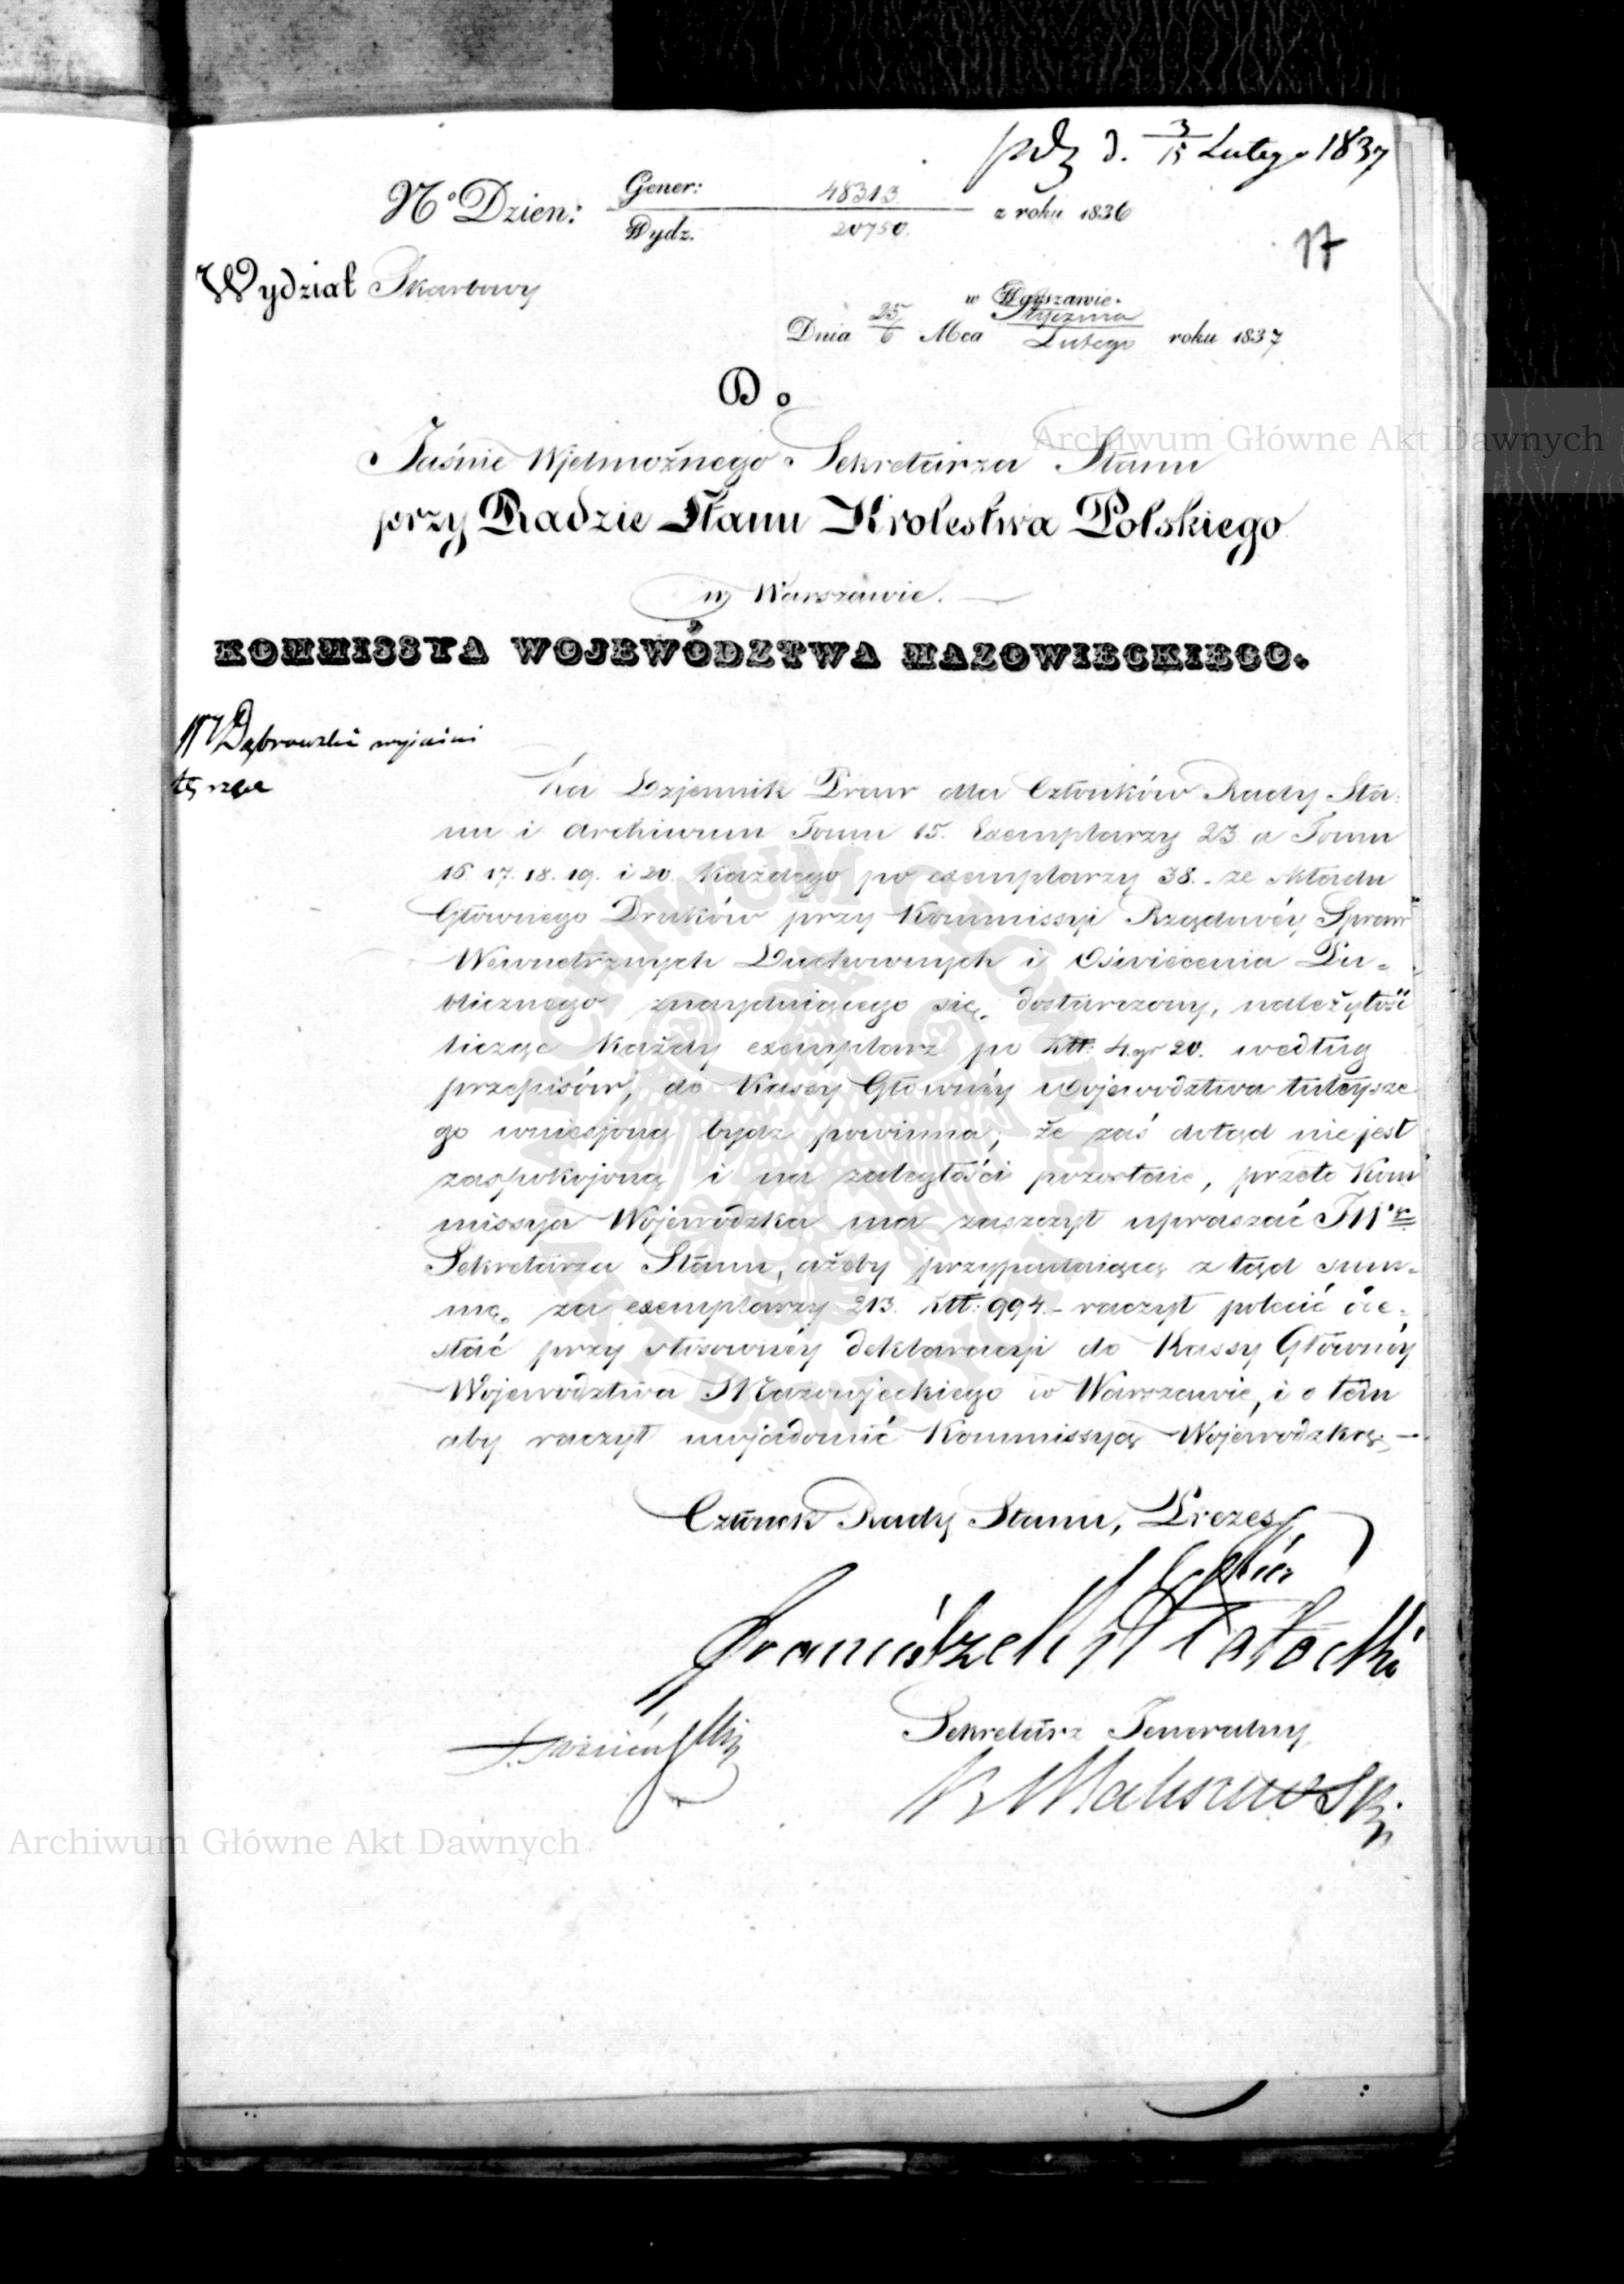 pdz d. 3/15 Lutego 1837
N° Dzien: Gener: 48313 z roku 1836
Wydz. 20750.
17
Wydział Skarbowy
w Warszawie.
Dnia 25/6 Mca Stycznia/Lutego roku 1837
Do
Jaśnie Wjelmożnego Sekretarza Stanu
przy Radzie Stanu Krolestwa Polskiego
w Warszawie.
KOMMISSYA WOJEWÓDZTWA MAZOWIECKIEGO.
Dąbrowski wyjaśni
tę rzecz
Za Dzjennik Praw dla Członków Rady Sta:
nu i Archiwum Tomu 15. Exemplarzy 23 a Tomu
16 17. 18. 19. i 20. każdego po exemplarzy 38. ze składu
Głownego Druków przy Kommissyi Rządowéy Spraw
Wewnętrznych Duchownych i Oświecenia Pu-
blicznego znayduiącego się, dostarczony, należytość
licząc każdy exemplarz po złt: 4. gr 20. według
przepisów, do Kassy Głownéy Wojewodztwa tuteysze
go wniesjoną bydz powinna; że zaś dotąd nie jest
zaspokojoną i na zaległości pozostaie, przeto Kom
missya Wojewodzka ma zaszczyt upraszać JWgo
Sekretarza Stanu, ażeby przypadaiącą z tąd sum-
mę za exemplarzy 213. złt: 994.- raczył polecić ode-
słać przy stosownéy deklaracyi do Kassy Głownéy
Wojewodztwa Mazowjeckiego w Warszawie, i o tém
aby raczył uwjadomić Kommissyą Wojewodzką.
Członek Rady Stanu, Prezes
Franciszek Potocki
Sekretarz Jeneralny
Archiwum Główne Akt Dawnych
Archiwum Główne Akt Dawnych
ARCHIWUM GŁÓWNE AKT DAWNYCH